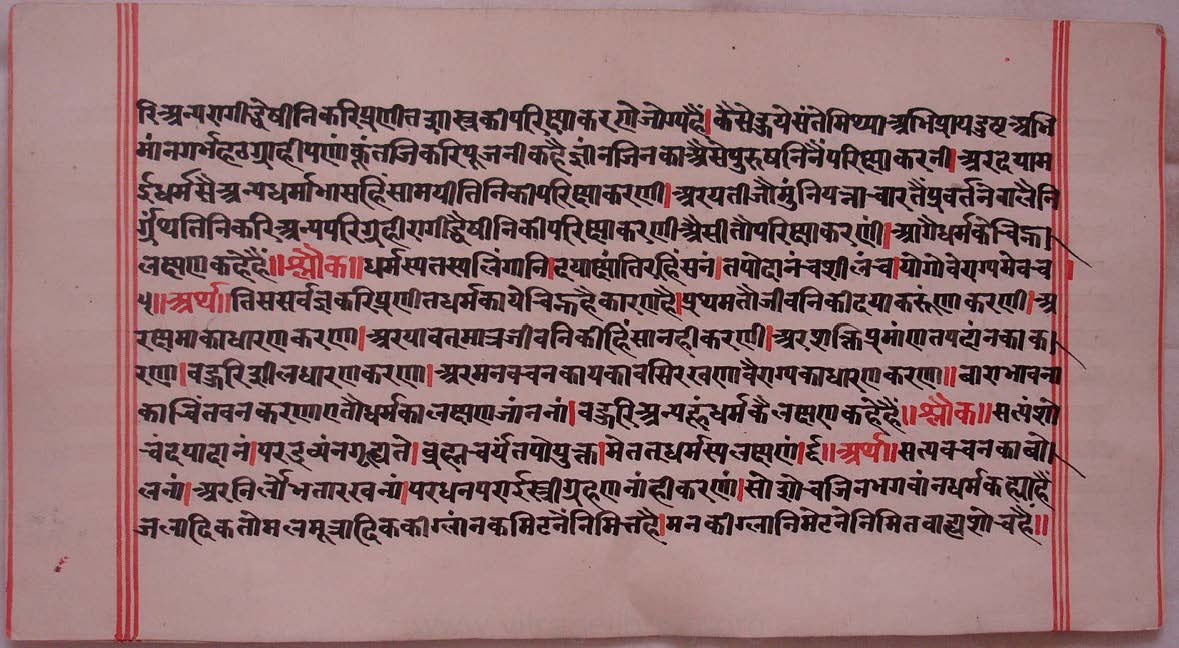 रि अन्य रागी द्वेषी नि करि प्रणीत शास्त्र की परिक्षा करणे जोग्य है। कैसे हुये संते मिथ्या अभिप्राय दुष्ट अभि
मांन गर्भ हठग्राही पणां कू तजि करि पूजनीक है ज्ञांन जिनका अैसे पुरुषनिनैं परिक्षा करनी। अर दया म
ई धर्म सै अन्य धर्माभास हिंसामयी तिनिकी परिक्षा करणी। अर यती जौ मुंनि यत्नाचार तैं प्रवर्तनेवालै नि
र्ग्रंथ तिनि करि अन्य परिग्रही रागी द्वैषी निकी परिक्षा करणी अैसी तौ परिक्षा करणीं। आगै धर्म के चिह्न।
लक्षण कहै हैं॥ श्लौक॥ धर्मस्य तस्य लिंगानि। दया क्षांतिरहिंसनं। तपो दानं च शीलं च। योगो वैराग्यमेव च।
५॥ अर्थ॥ तिस सर्वज्ञ करि प्रणीत धर्म का ये चिह्न है कारण है। प्रथम तौ जीवनिकी दया करूंणा करणी। अ
र क्षमा का धारण करणा। अर यावत मात्र जीवनिकी हिंसा नही करणी। अर शक्ति प्रमांण तप दांन का क।
रणा। बहुरि शील धारण करणा। अर मन वचन काय का वसि रखणा वैराग्य का धारण करणा॥ बारा भावना
का चिंतवन करणा ए तौ धर्म का लक्षण जांननां। बहुरि अन्य हूं धर्म कै लक्षण कहै हैं॥ श्लौक॥ सत्यं शो
चं दया दानं। परद्रव्यं न गृह्यते। ब्रह्मचर्य तपो युक्त। मेतत धर्मस्य लक्षणं। ६॥ अर्थ॥ सत्य वचन का बो।
लनां। अर निर्लोभता रखनां। परधन पराई स्त्री ग्रहण नांही करणां। सो शौच जिन भगवांन धर्म कह्या है
जलादिक तो मल मूत्रादिक की ग्लांन क मिटनैं निमित्त है। मन की ग्लानि मेटने निमित बाह्य शोच है॥